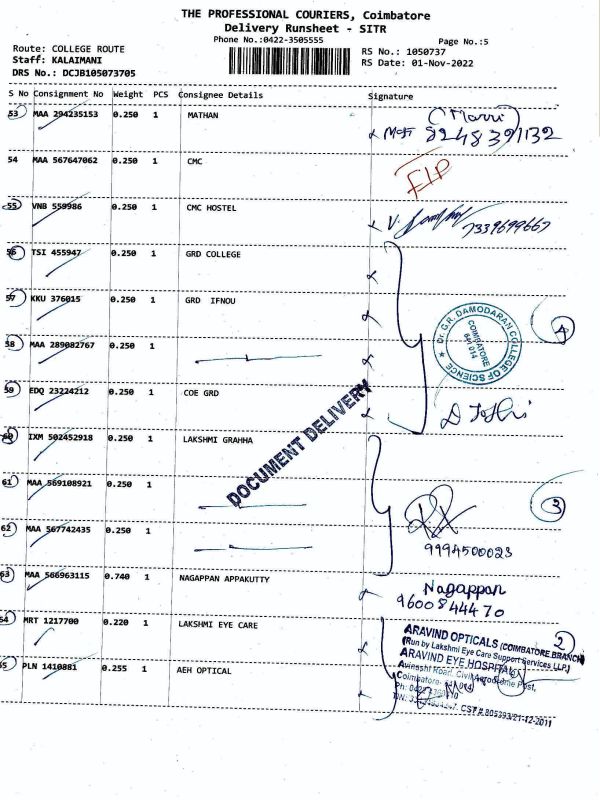 THE PROFESSIONAL COURIERS, Coimbatore
Delivery Runsheet - SITR
Phone No.:0422-3505555
Page No.:5
Route: COLLEGE ROUTE
Staff: KALAIMANI
DRS No.: DCJB105073705
RS No.: 1050737
RS Date: 01-Nov-2022
S No Consignment No Weight PCS Consignee Details Signature
53 MAA 294235153 0.250 1 MATHAN
8248391132
54 MAA 567647062 0.250 1 CMC
55 VNB 559986 0.250 1 CMC HOSTEL
7339699667
56 TSI 455947 0.250 1 GRD COLLEGE
57 KKU 376015 0.250 1 GRD IFNOU
58 MAA 289082767 0.250 1
59 EDQ 23224212 0.250 1 COE GRD
Dr. G.R. DAMODARAN COLLEGE OF SCIENCE
COIMBATORE
641 014
4
DOCUMENT DELIVERY
60 IXM 502452918 0.250 1 LAKSHMI GRAHHA
61 MAA 569108921 0.250 1
3
62 MAA 567742435 0.250 1
9994500023
63 MAA 566963115 0.740 1 NAGAPPAN APPAKUTTY
Nagappan
9600844470
64 MRT 1217700 0.220 1 LAKSHMI EYE CARE
2
65 PLN 1410881 0.255 1 AEH OPTICAL
ARAVIND OPTICALS (COIMBATORE BRANCH)
(Run by Lakshmi Eye Care Support Services LLP.)
ARAVIND EYE HOSPITAL
Avinashi Road, Civil Aerodrome Post,
Coimbatore- 641 014
CST # 805393/21-12-2011